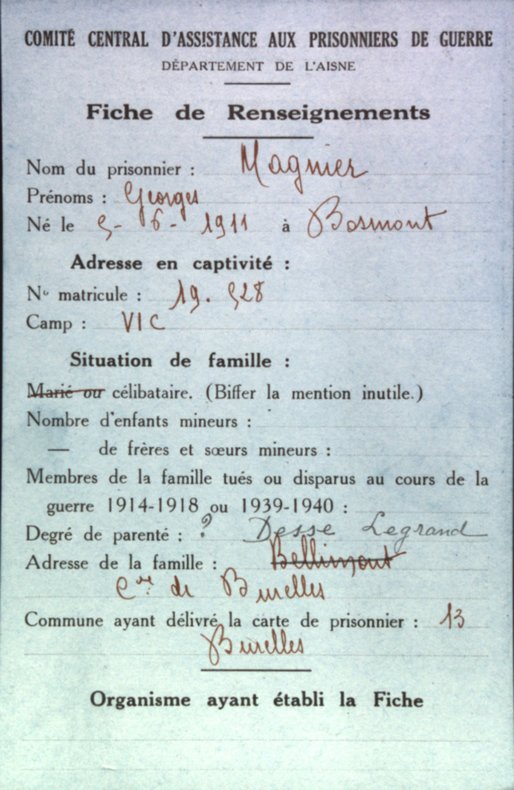 COMITÉ CENTRAL D'ASSISTANCE AUX PRISONNIERS DE GUERRE
DÉPARTEMENT DE L'AISNE
Fiche de Renseignements
Nom du prisonnier : Magnier
Prénoms : Georges
Né le 5-6-1911 à Bosmont
Adresse en captivité :
No matricule : 19.528
Camp : VIC
Situation de famille :
Marié ou célibataire. (Biffer la mention inutile.)
Nombre d'enfants mineurs :
— de frères et sœurs mineurs :
Membres de la famille tués ou disparus au cours de la
guerre 1914-1918 ou 1939-1940 :
Degré de parenté : ? Desse Legrand
Adresse de la famille :
Cne de Burelles
Commune ayant délivré la carte de prisonnier : 13
Burelles
Organisme ayant établi la Fiche